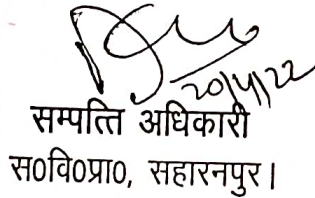 20/4/22
सम्पत्ति अधिकारी
स०वि०प्रा०, सहारनपुर।